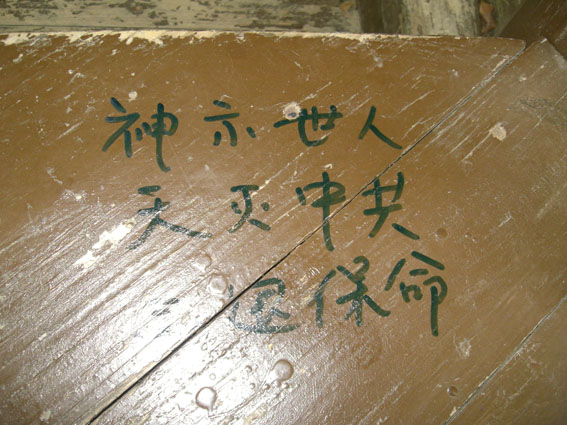 神示世人
天灭中共
三退保命